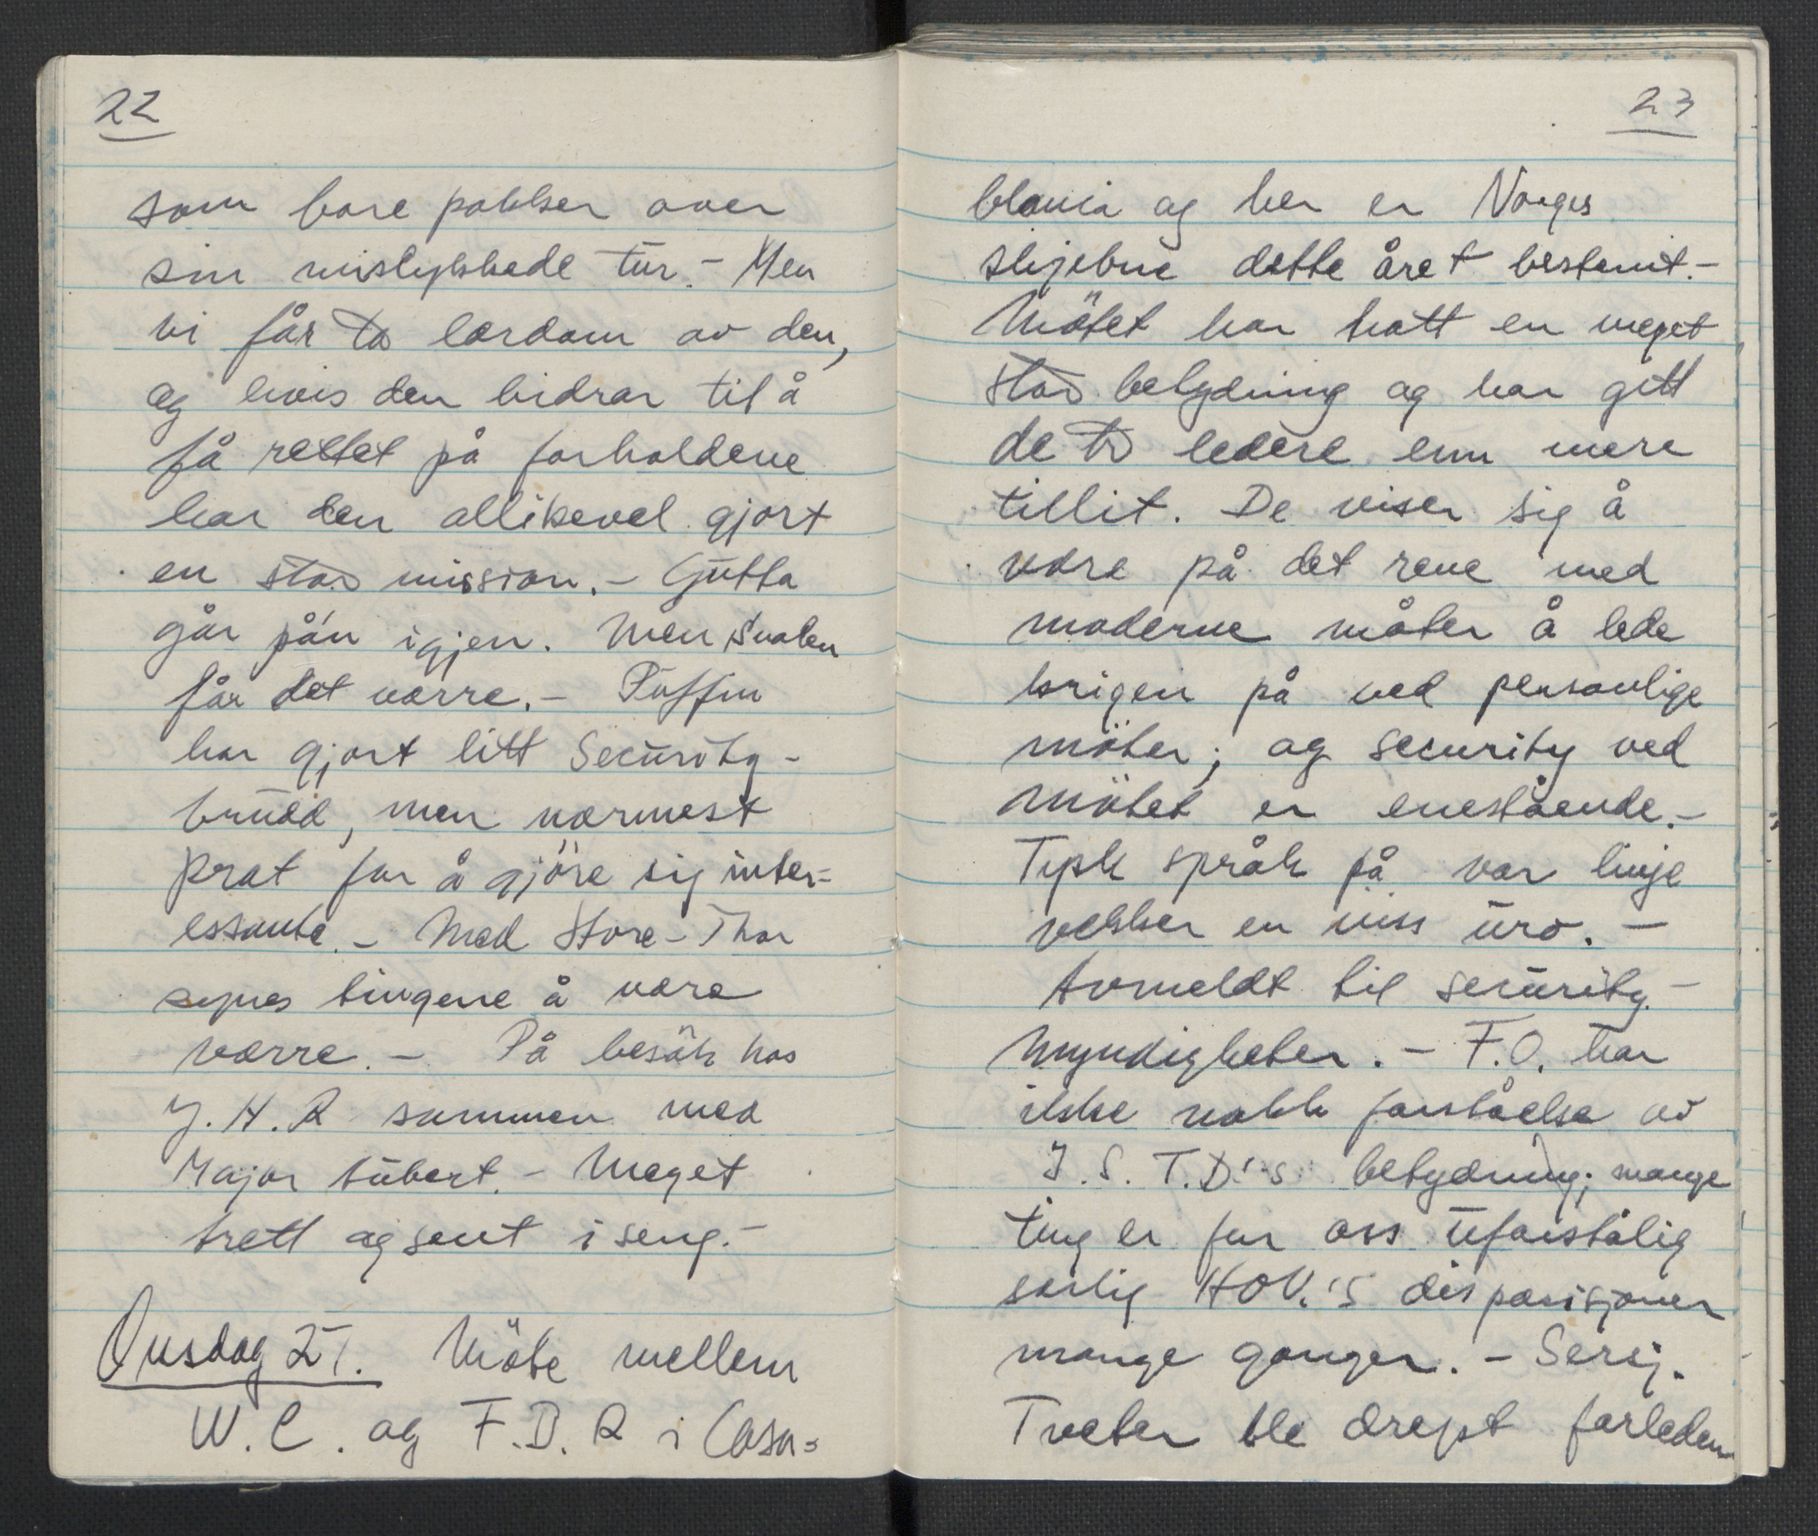 22
som bare pokker over
sin mislykkede tur. – Men
vi får ta lærdom av den,
og hvis den bidrar til å
få rettet på forholdene
har den allikevel gjort
en stor mission. – Gutta
går på'n igjen. Men Svalen
får det værre. – Puffin
har gjort litt Security-
brudd, men nærmest
prat for å gjöre sig inter=
essante. – Med Store-Thor
synes tingene å være
værre. – På besök hos
J. H. R sammen med
Major Sübert. – Meget
trett og sent i seng. –
Onsdag 27. Möte mellem
W. C. og F. D. R i Casa=
23
blanca og her er Norges
skjebne dette året bestemt. –
Mötet har hatt en meget
stor betydning og har gitt
de to ledere enn mere
tillit. De viser sig å
være på det rene med
moderne måter å lede
krigen på ved personlige
möter; og security ved
mötet er enestående. –
Tysk språk på vor linje
vekker en viss uro. –
Avmeldt til security-
myndigheter. – F.O. har
ikke nokk forståelse av
J. S. T.D.'s betydning; mange
ting er for oss uforståelig
særlig HOV.'s disposisjoner
mange ganger. – Serj.
Tveter ble drept forleden